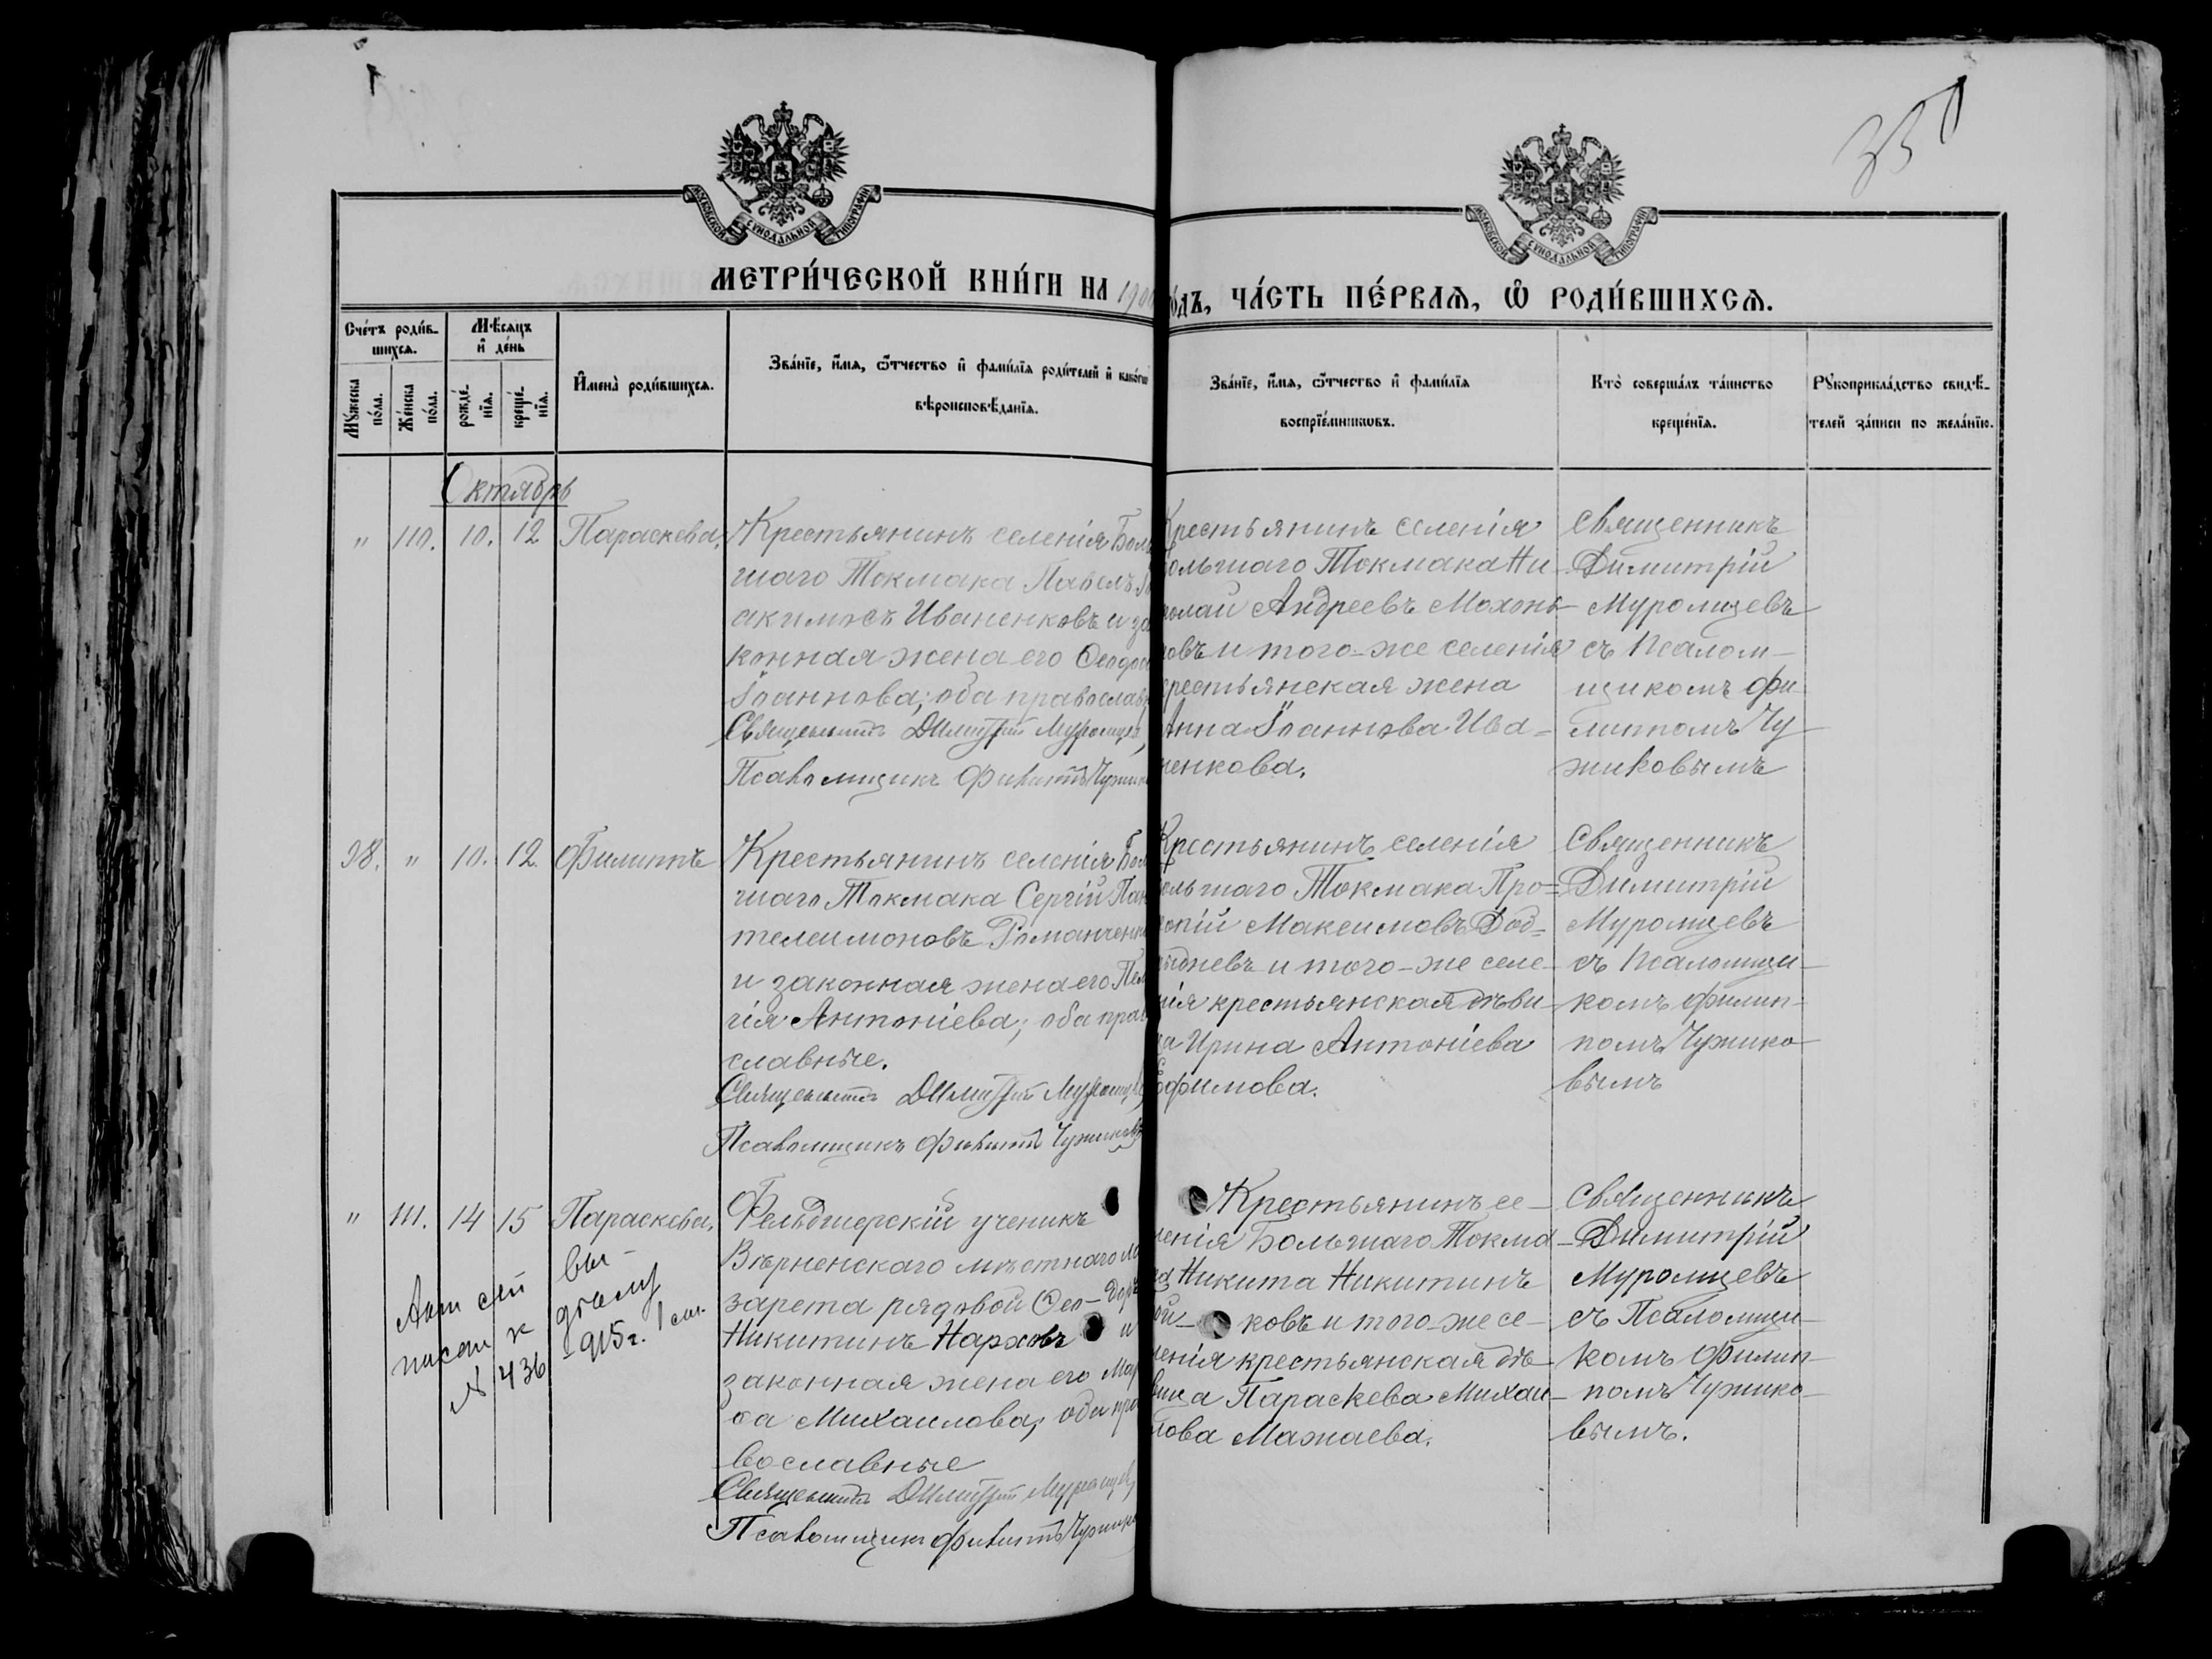 350
МОСКОВСКОЙ СѴНОДАЛЬНОЙ ТИПОГРАФІИ
МОСКОВСКОЙ СѴНОДАЛЬНОЙ ТИПОГРАФІИ
МЕТРИ́ЧЕСКОЙ КНИ́ГИ НА 190
о́дъ, ЧА́СТЬ ПЕ́РВАѦ, Ѡ҆ РОДИ́ВШИХСѦ.
Сче́тъ роди́в-
шихсѧ.
Мѣ́сѧцъ
и҆ де́нь
Мꙋ́жеска
по́ла.
Же́нска
по́ла.
рожде́-
нїѧ.
креще́-
нїѧ.
И҆мена̀ роди́вшихсѧ.
Зва́нїе, и҆́мѧ, ѻ҆́тчество и҆ фами́лїѧ роди́телей и҆ како́гѡ
вѣроисповѣ́данїѧ.
Зва́нїе, и҆́мѧ, ѻ҆́тчество и҆ фами́лїѧ
воспрїе́мникѡвъ.
Кто̀ соверша́лъ та́инство
креще́нїѧ.
Рꙋкоприкла́дство свидѣ́-
телей за́писи по жела́нїю.
Октябрь
" 110. 10. 12 Параскева.
Крестьянинъ селенія Боль
шаго Токмака Павелъ Іо
акимовъ Иваненковъ и за
конная жена его Ѳеодос
Іоаннова; оба православн
Священникъ Димитрій Муромцевъ
Псаломщикъ Филиппъ Чужик
Крестьянинъ селенія
ольшаго Токмака Ни-
колай Андреевъ Мохонь-
ковъ и того-же селенія
крестьянская жена
Анна Іоаннова Ива-
ненкова.
Священникъ
Димитрій
Муромцевъ
съ Псалом-
щикомъ Фи-
липпомъ Чу-
жиковымъ
98. " 10. 12. Филиппъ
Крестьянинъ селенія Бол
шаго Токмака Сергій Пан
телеимоновъ Романченк
и законная жена его Пел
гія Антоніева; оба прав
славные.
Священникъ Димитрій Муромцев
Псаломщикъ Филиппъ Чужиковъ
Крестьянинъ селенія
ольшаго Токмака Про-
копій Максимовъ
и того-же селе-
нія крестьянская дѣви
ца Ирина Антоніева
Ефимова.
Священникъ
Димитрій
Муромцевъ
съ Псаломщи-
комъ Филип-
помъ Чужико-
вымъ
" 111. 14 15 Параскева.
Фельдшерскій ученикъ
Вѣрненскаго мѣстнаго ла
зарета рядовой Ѳео- дор
Никитинъ и
законная жена его Мар
ѳа Михаилова; оба пра
вославные
Священникъ Димитрій Муромцев
Псаломщикъ Филиппъ Чужик
Крестьянинъ се-
ленія Большаго Токма-
ка Никита Никитинъ
ковъ и того-же се-
ленія крестьянская дѣ-
вица Параскева Михаи-
лова Мажаева.
Священникъ
Димитрій
Муромцевъ
съ Псаломщи-
комъ Филип-
помъ Чужико-
вымъ.
вы-
писан к
N 436
915 г.